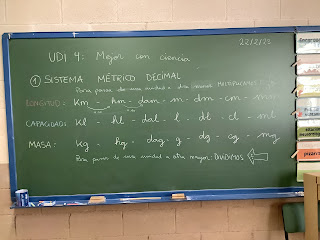 22/2/22
UDI 4: Mejor con ciencia
① SISTEMA MÉTRICO DECIMAL
Para pasar de una unidad a otra menor: MULTIPLICAMOS
LONGITUD: Km - hm - dam - m - dm - cm - mm
CAPACIDAD: Kl - hl - dal - l - dl - cl - ml
MASA: kg - hg - dag - g - dg - cg - mg
Para pasar de una unidad a otra mayor: DIVIDIMOS